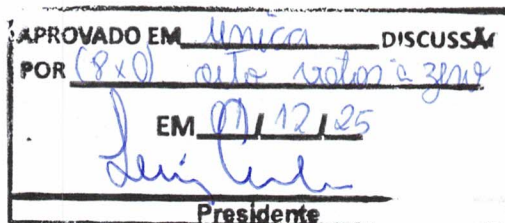 APROVADO EM única DISCUSSÃ
POR (8x0) oito votos a zero
EM 01/12/25
Presidente